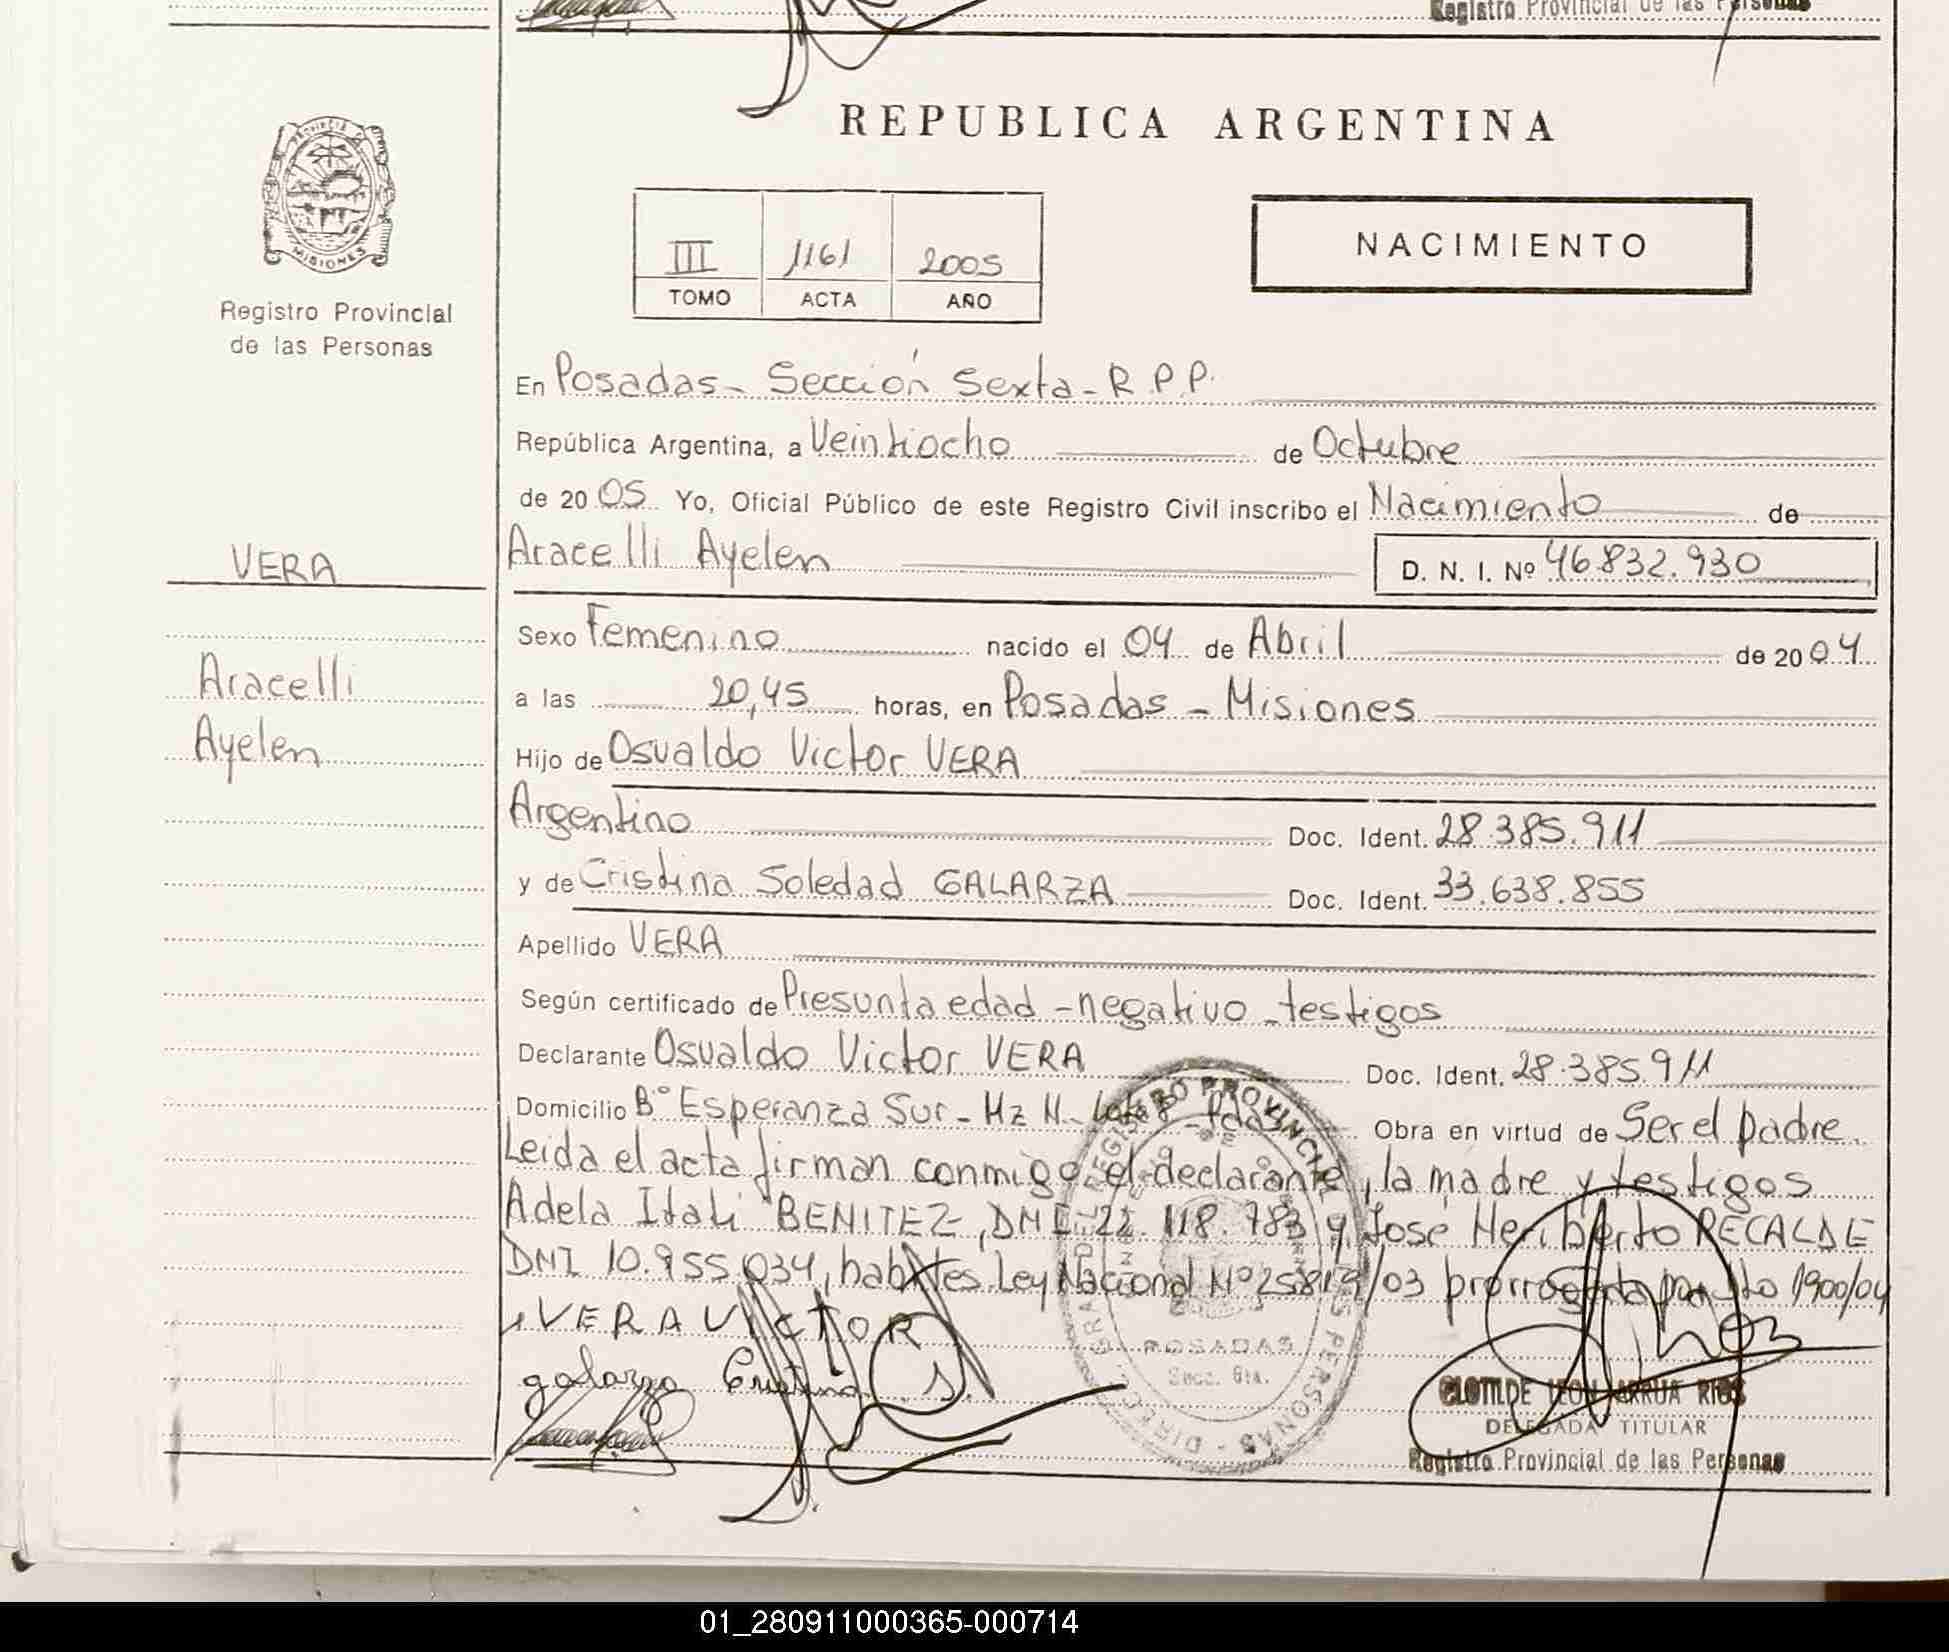 Registro Provincial de las Personas
PROVINCIA DE
MISIONES
Registro Provincial
de las Personas
REPUBLICA ARGENTINA
III 1161 2005
TOMO ACTA AÑO
NACIMIENTO
En Posadas - Sección Sexta - R.P.P.
República Argentina, a Veintiocho de Octubre
de 2005 Yo, Oficial Público de este Registro Civil inscribo el Nacimiento de
VERA
Aracelli Ayelen D. N. I. Nº 46.832.930
Sexo Femenino nacido el 04 de Abril de 2004
Aracelli
a las 20,45 horas, en Posadas - Misiones
Ayelen
Hijo de Osvaldo Victor VERA
Argentino Doc. Ident. 28.385.911
y de Cristina Soledad GALARZA Doc. Ident. 33.638.855
Apellido VERA
Según certificado de Presunta edad - negativo - testigos
Declarante Osvaldo Victor VERA Doc. Ident. 28.385.911
Domicilio Bº Esperanza Sur - Mz Obra en virtud de Ser el padre.
Leida el acta firman conmigo el declarante, la madre y testigos
Adela Itati BENITEZ, DNI 22.118.783 y José Heriberto RECALDE
DNI 10.955.034, Ley Nacional Nº 25819/03 1900/04
VERA VICTOR
galarza Cristina S.
POSADAS
Secc. 6ta.
CLOTILDE LEON ARRUA RIOS
DELEGADA TITULAR
Registro Provincial de las Personas
01_280911000365-000714